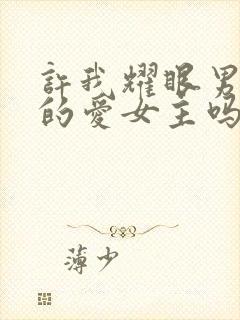 許我耀眼男
的愛女主吗
薄少